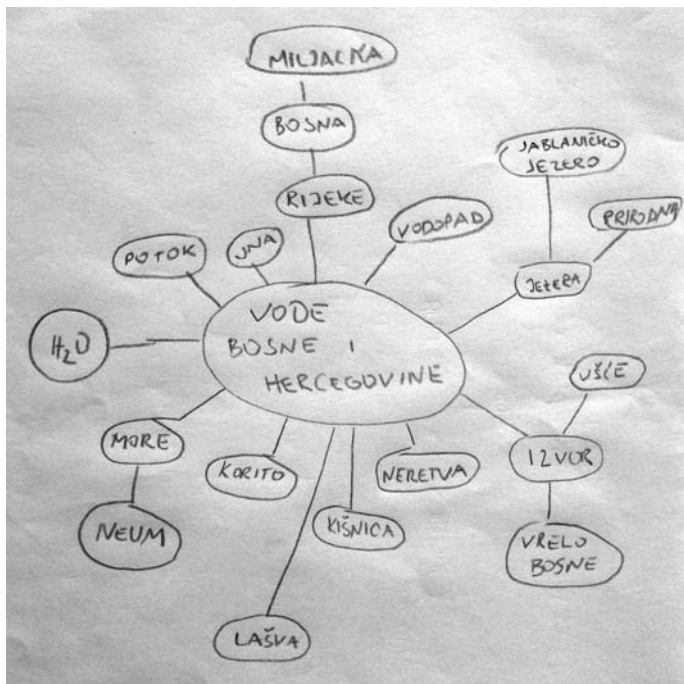 MILJACKA
BOSNA
RIJEKE
JABLANIČKO
JEZERO
PRIRODNA
VODOPAD
POTOK
JEZERA
VODE
BOSNE I
HERCEGOVINE
H₂O
UŠĆE
MORE
KORITO
NERETVA
IZVOR
NEUM
KIŠNICA
VRELO
BOSNE
LAŠVA